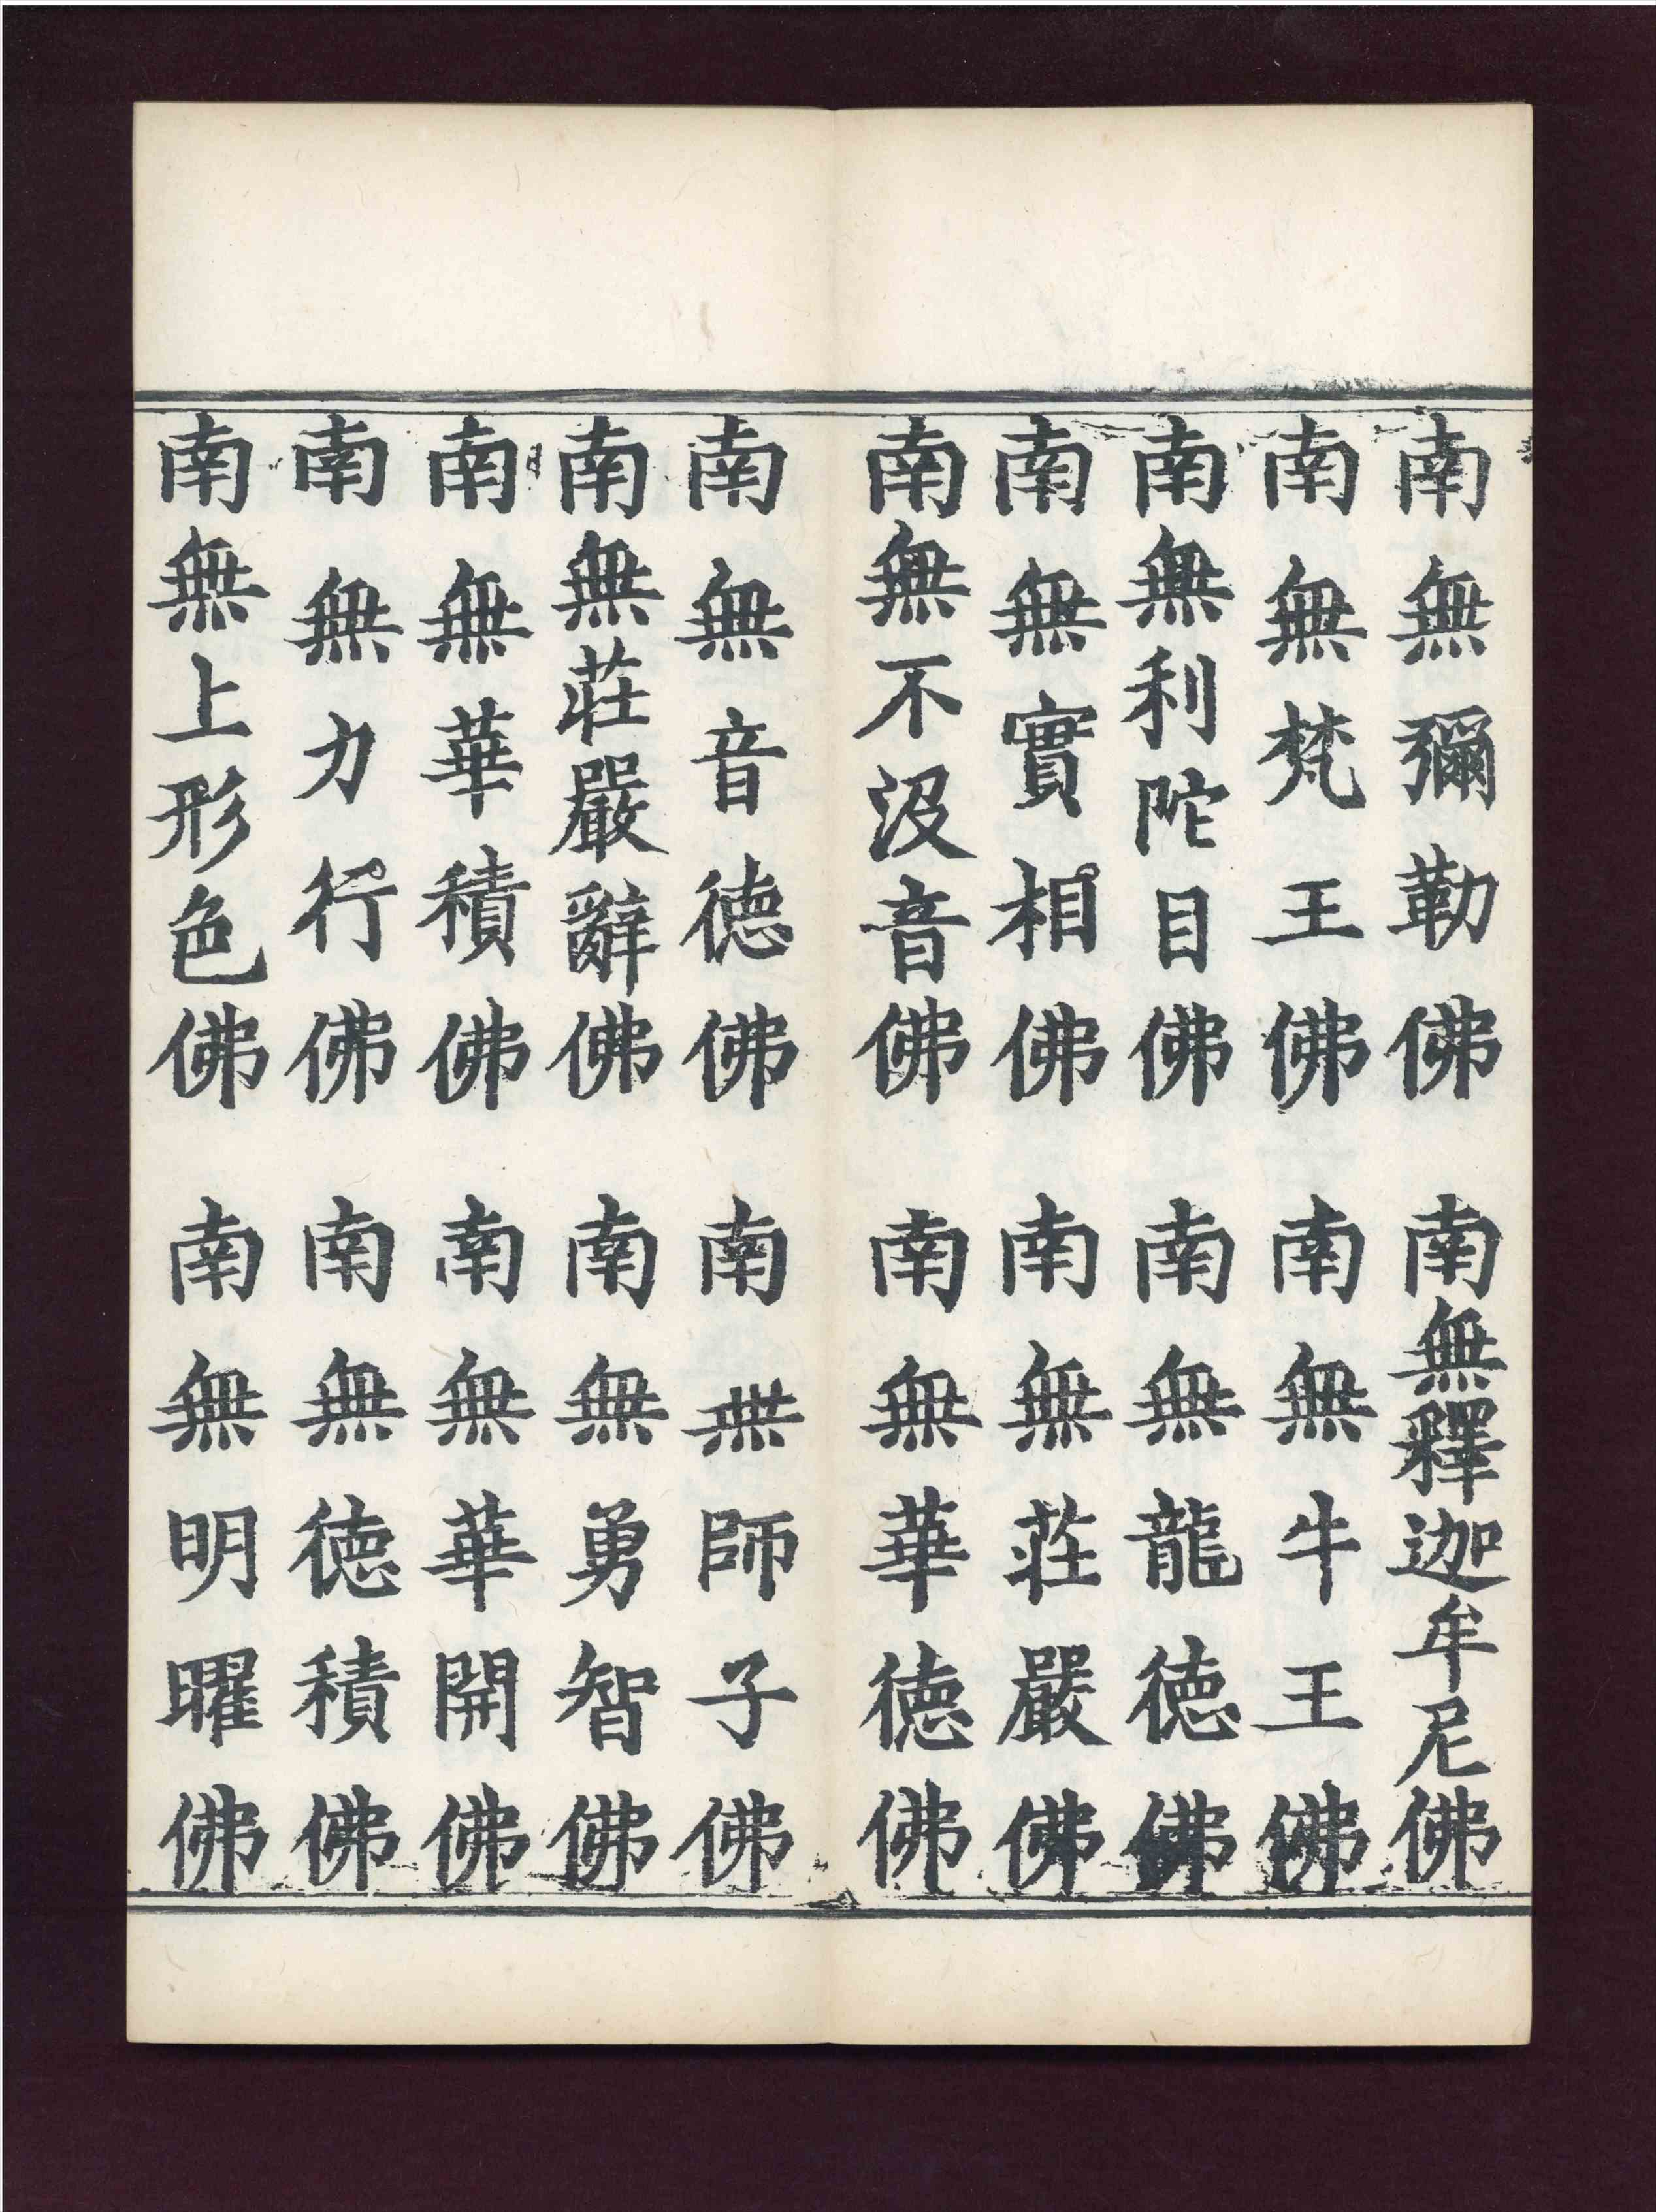 南無彌勒佛　南無釋迦牟尼佛
南無梵王佛　南無牛王佛
南無利陀目佛　南無龍德佛
南無實相佛　南無莊嚴佛
南無不沒音佛　南無華德佛
南無音德佛　南無師子佛
南無莊嚴辭佛　南無勇智佛
南無華積佛　南無華開佛
南無力行佛　南無德積佛
南無上形色佛　南無明曜佛